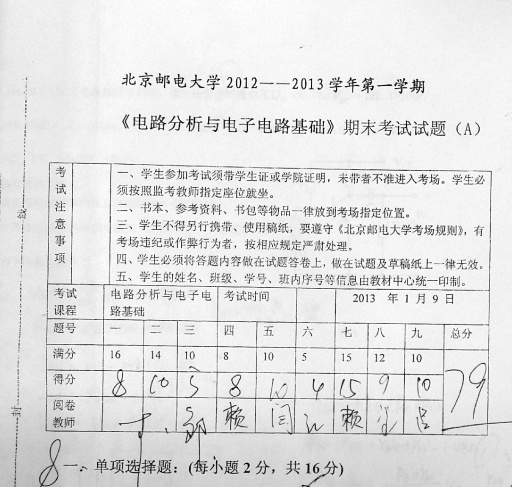 北京邮电大学 2012——2013 学年第一学期
《电路分析与电子电路基础》期末考试试题（A）
考试注意事项
一、学生参加考试须带学生证或学院证明，未带者不准进入考场。学生必
须按照监考教师指定座位就坐。
二、书本、参考资料、书包等物品一律放到考场指定位置。
三、学生不得另行携带、使用稿纸，要遵守《北京邮电大学考场规则》，有
考场违纪或作弊行为者，按相应规定严肃处理。
四、学生必须将答题内容做在试题答卷上，做在试题及草稿纸上一律无效。
五、学生的姓名、班级、学号、班内序号等信息由教材中心统一印制。
考试课程 电路分析与电子电路基础 考试时间 2013 年 1 月 9 日
题号 一 二 三 四 五 六 七 八 九 总分
满分 16 14 10 8 10 5 15 12 10
得分 8 10 5 8 10 4 15 9 10 79
阅卷教师 郭 赖 闫 赖 吕
8 一、单项选择题：(每小题 2 分，共 16 分)